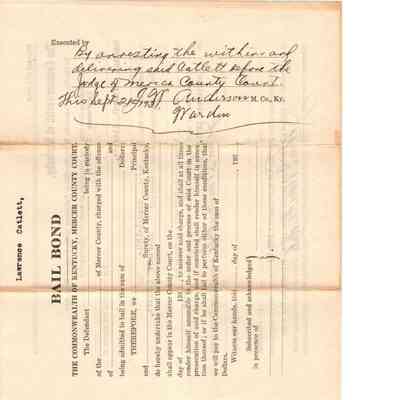 Executed by
By arresting the within and
delivering said Catlett before the
Judge of Mercer County Court.
This Sept 21st
Anderson M. Co., Ky.
Warden
Lawrence Catlett,
BAIL BOND
THE COMMONWEALTH OF KENTUCKY, MERCER COUNTY COURT.
The Defendant being in custody
of the of Mercer County, charged with the offense
of and
being admitted to bail in the sum of Dollars:
THEREFORE, we Principal
and Surety, of Mercer County, Kentucky,
do hereby undertake that the above named
shall appear in the Mercer County Court, on the
day of 193 , to answer said charge, and shall at all times
render himself amenable to the order and process of said Court in the
prosecution of said charge, and if convicted shall render himself in execution
thereof; or if he shall fail to perform either of these conditions, that
we will pay to the Commonwealth of Kentucky the sum of
Dollars.
Witness our hands, this day of 193
Subscribed and acknowledged
in presence of